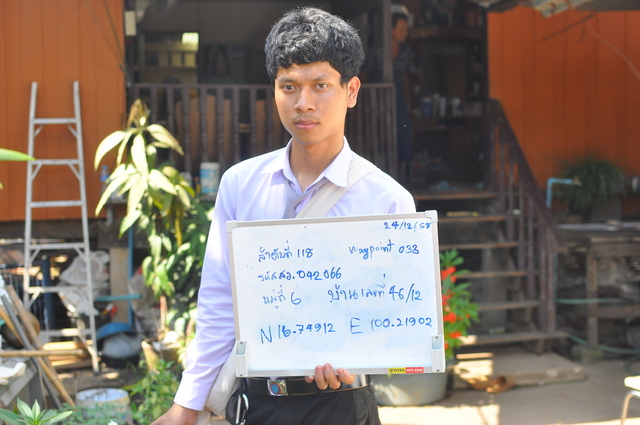 24/12/58
ลำดับที่ 118 waypoint 033
รหัสสว.042066
หมู่ที่ 6 บ้านเลขที่ 46/12
N 16.74912 E 100.21902